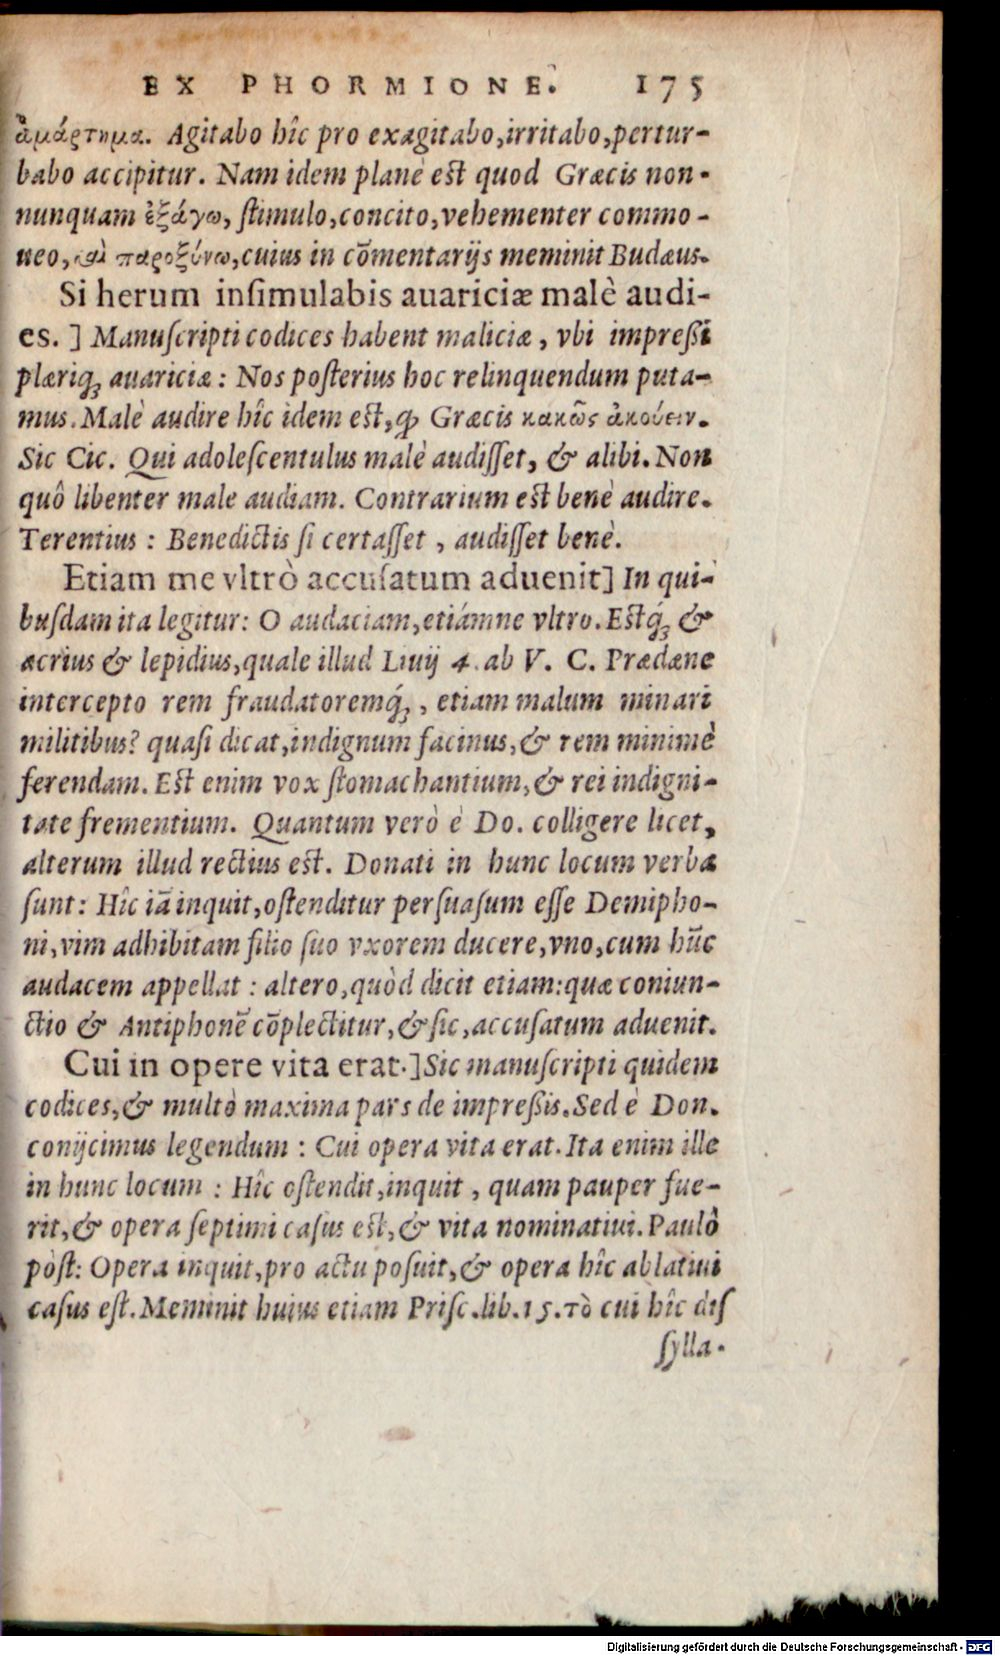 EX PHORMIONE. 175
ἁμάρτημα. Agitabo hîc pro exagitabo,irritabo,pertur-
babo accipitur. Nam idem planè est quod Græcis non-
nunquam ἐξάγω, ſtimulo,concito,vehementer commo-
ueo,καὶ παροξύνω,cuius in cõmentarijs meminit Budæus.
Si herum inſimulabis auariciæ malè audi-
es. ] Manuſcripti codices habent maliciæ, vbi impreßi
plæriq; auariciæ: Nos poſterius hoc relinquendum puta-
mus. Malè audire hîc idem est,qđ Græcis κακῶς ἀκούειν.
Sic Cic. Qui adoleſcentulus malè audiſſet, & alibi. Non
quô libenter male audiam. Contrarium est benè audire.
Terentius: Benedictis ſi certaſſet, audiſſet benè.
Etiam me vltrò accuſatum aduenit] In qui-
buſdam ita legitur: O audaciam,etiámne vltro. Estq́; &
acrius & lepidius,quale illud Liuij 4. ab V. C. Prædæne
intercepto rem fraudatoremq́;, etiam malum minari
militibus? quaſi dicat,indignum facinus,& rem minimè
ferendam. Est enim vox ſtomachantium,& rei indigni-
tate frementium. Quantum verò è Do. colligere licet,
alterum illud rectius est. Donati in hunc locum verba
ſunt: Hîc iã inquit,oſtenditur perſuaſum eſſe Demipho-
ni,vim adhibitam filio ſuo vxorem ducere,vno,cum hũc
audacem appellat: altero,quòd dicit etiam:quæ coniun-
ctio & Antiphonẽ cõplectitur,& ſic,accuſatum aduenit.
Cui in opere vita erat.]Sic manuſcripti quidem
codices,& multò maxima pars de impreßis.Sed è Don.
conijcimus legendum: Cui opera vita erat. Ita enim ille
in hunc locum: Hîc oſtendit,inquit, quam pauper fue-
rit,& opera ſeptimi caſus est,& vita nominatiui. Paulô
pòſt: Opera inquit,pro actu poſuit,& opera hîc ablatiui
caſus eſt. Meminit huius etiam Priſc.lib.15.τὸ cui hîc diſ
ſylla-
Digitalisierung gefördert durch die Deutsche Forschungsgemeinschaft - DFG